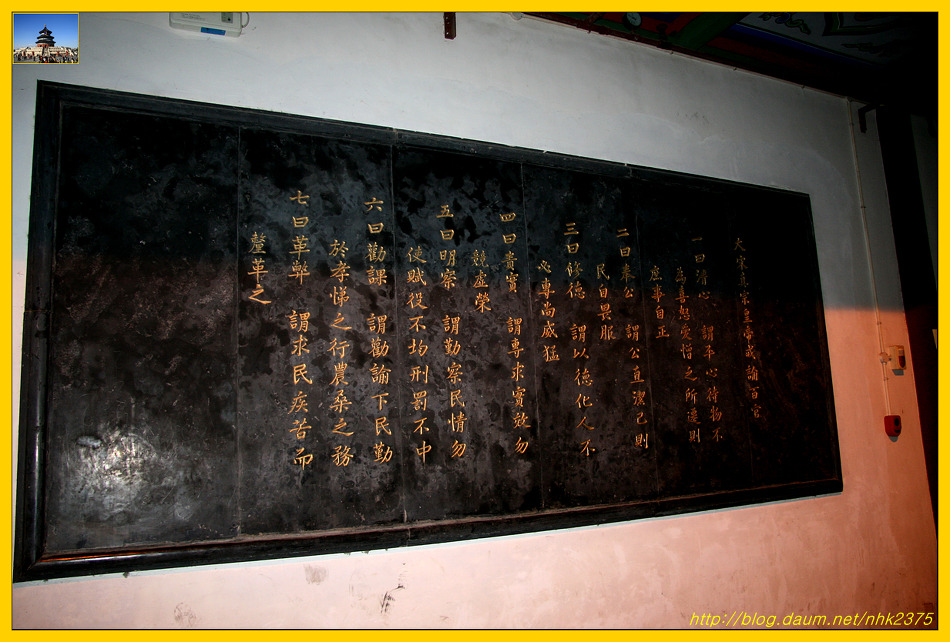 大宋真宗皇帝戒諭百官
一曰清心 謂平心待物不
為喜怒愛憎之所遷則
庶事自正
二曰奉公 謂公直潔己則
民自畏服
三曰修德 謂以德化人不
必專尚威猛
四曰責實 謂專求實效勿
競虛榮
五曰明察 謂勤察民情勿
使賦役不均刑罰不中
六曰勸課 謂勸諭下民勤
於孝悌之行農桑之務
七曰革弊 謂求民疾苦而
釐革之
http://blog.daum.net/nhk2375